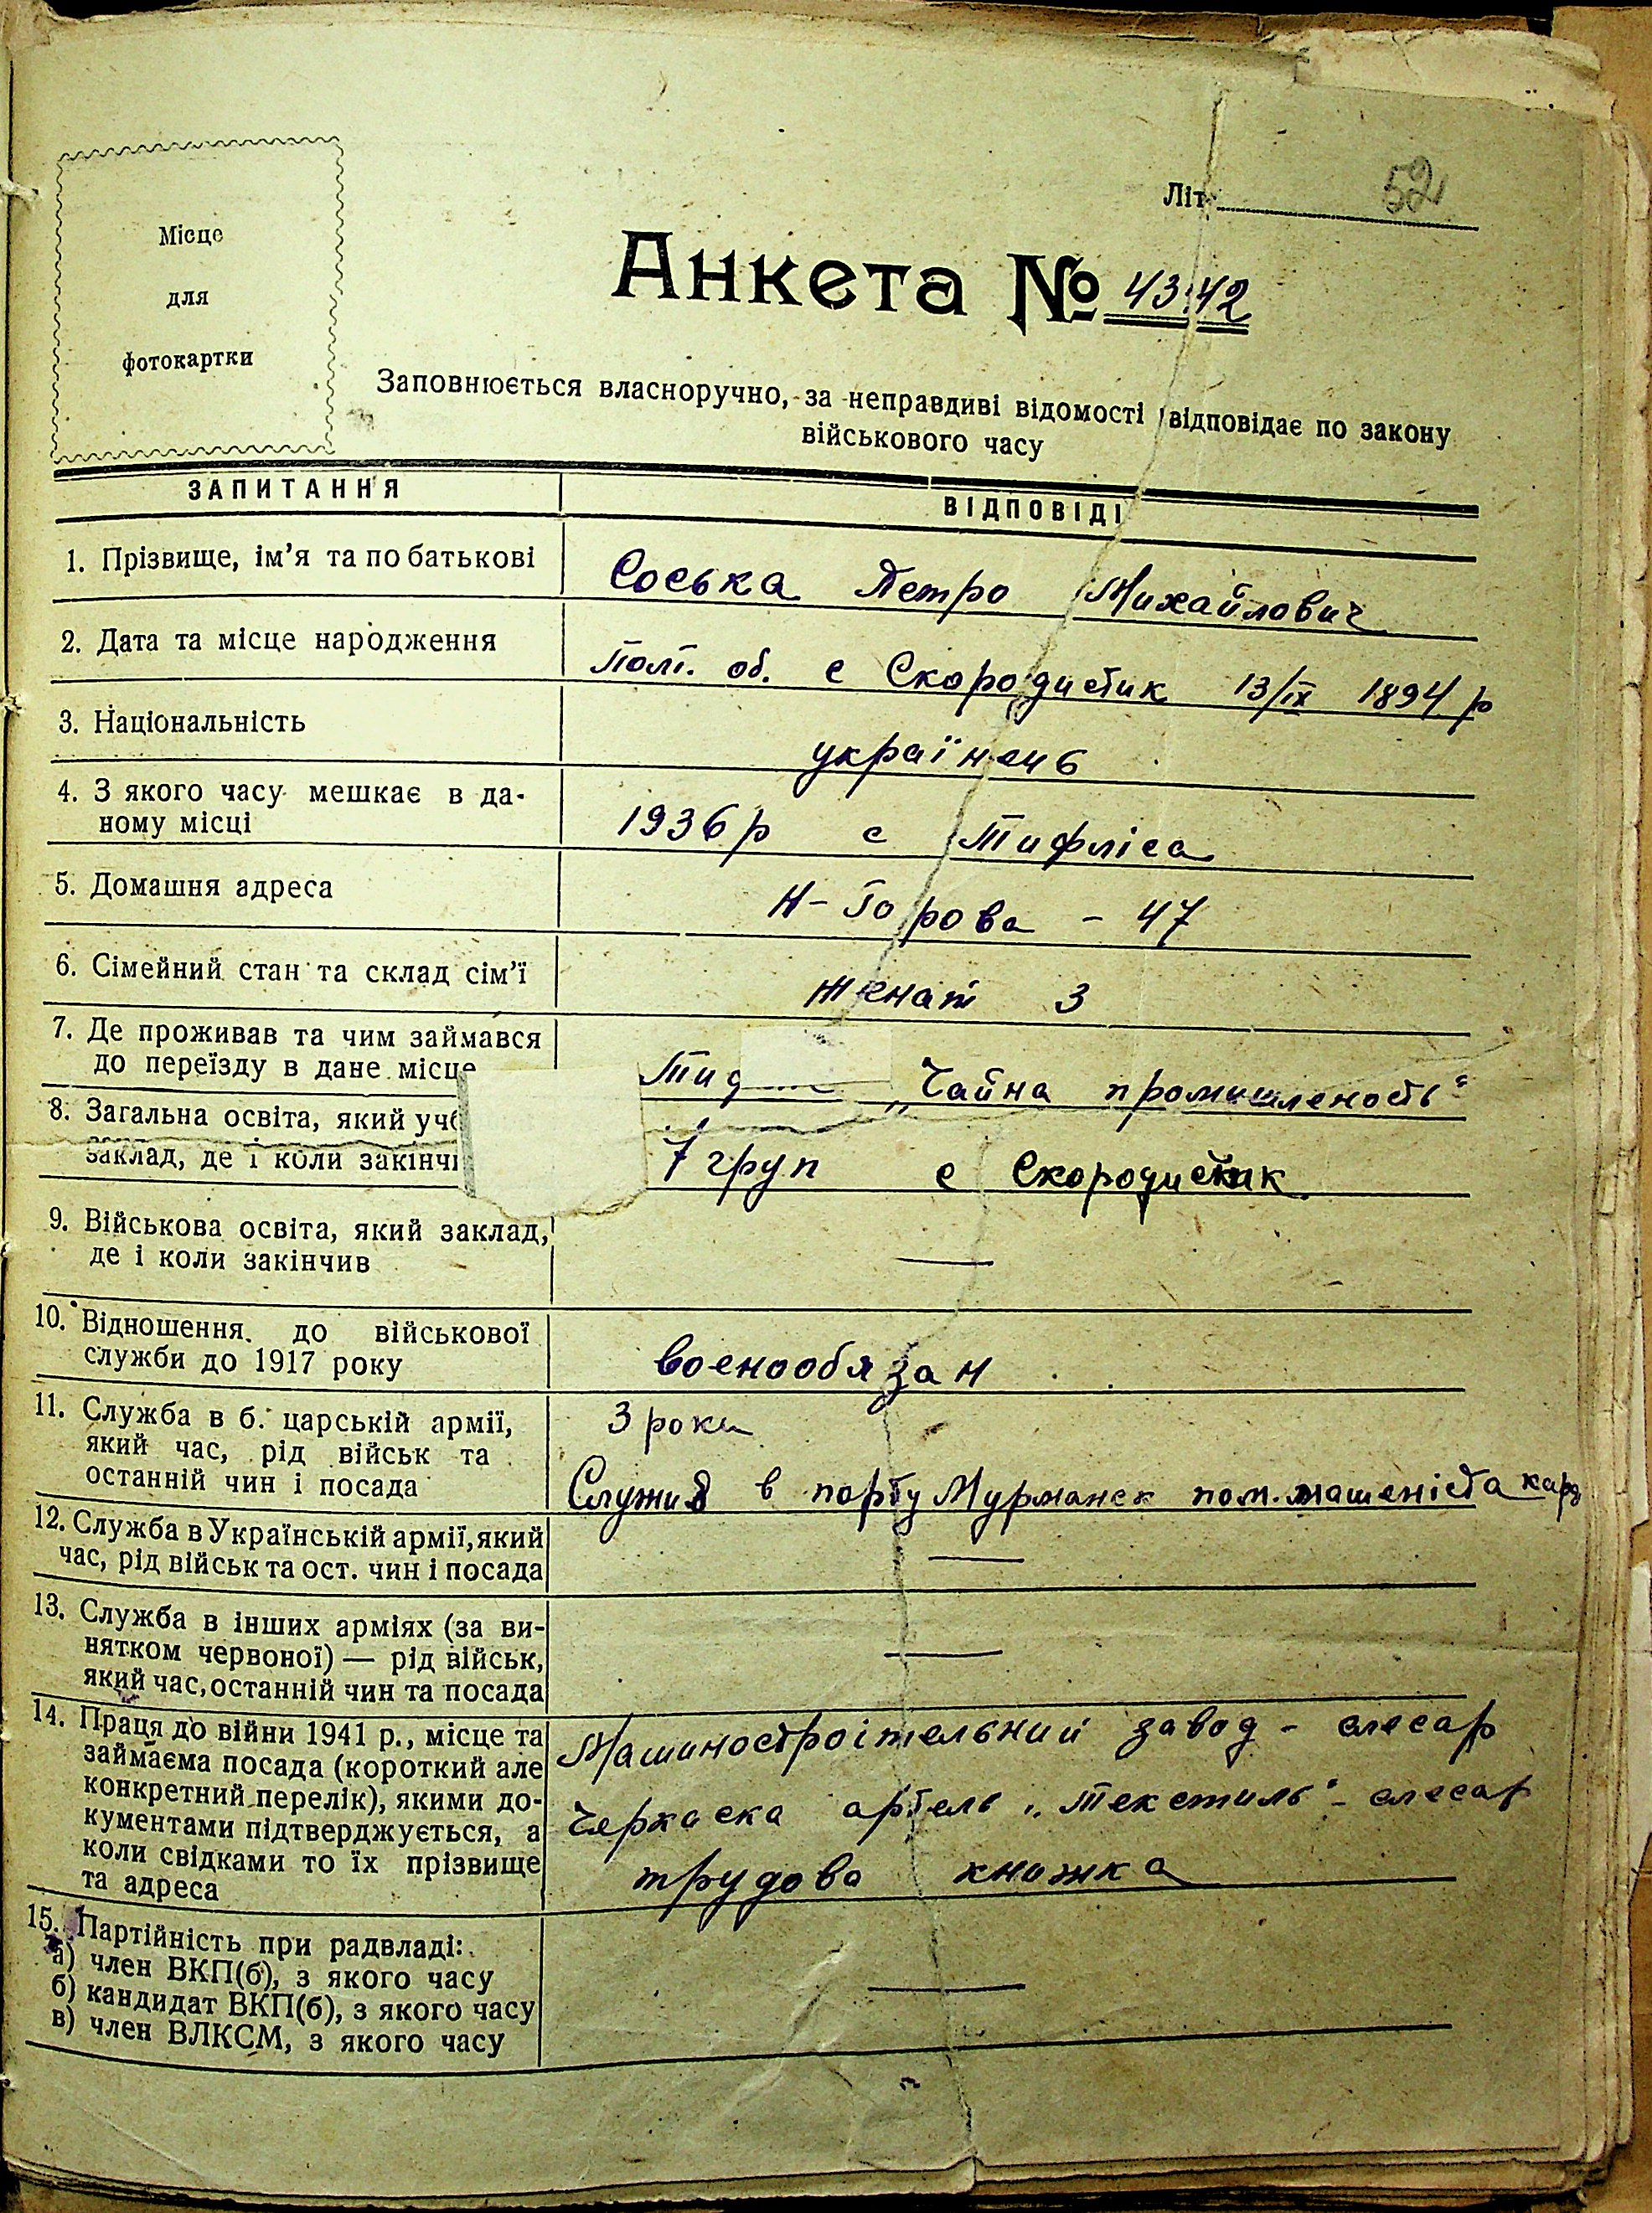 Місце
для
фотокартки
Літ. 52
Анкета № 4342
Заповнюється власноручно, за неправдиві відомості відповідає по закону
військового часу
ЗАПИТАННЯ ВІДПОВІДІ
1. Прізвище, ім'я та по батькові Соська Петро Михайлович
2. Дата та місце народження Полт. об. с Скородистик 13/ІХ 1894 р
3. Національність українець
4. З якого часу мешкає в да-
ному місці 1936 р с Тифліса
5. Домашня адреса Н-Горова - 47
6. Сімейний стан та склад сім'ї женат 3
7. Де проживав та чим займався
до переїзду в дане місце „Чайна промишленость"
8. Загальна освіта, який
заклад, де і коли 7 груп с Скородистик
9. Військова освіта, який заклад,
де і коли закінчив —
10. Відношення до військової
служби до 1917 року воєнообязан
11. Служба в б. царській армії, 3 роки
який час, рід військ та
останній чин і посада Служив в порту Мурманск пом. машеніста
12. Служба в Українській армії, який
час, рід військ та ост. чин і посада —
13. Служба в інших арміях (за ви-
нятком червоної) — рід військ,
який час, останній чин та посада —
14. Праця до війни 1941 р., місце та Машиностроітельний завод - слесар
займаєма посада (короткий але
конкретний перелік), якими до-
кументами підтверджується, а Черкаска артель „Текстиль" - слесар
коли свідками то їх прізвище
та адреса трудова книжка
15. Партійність при радвладі:
а) член ВКП(б), з якого часу
б) кандидат ВКП(б), з якого часу —
в) член ВЛКСМ, з якого часу